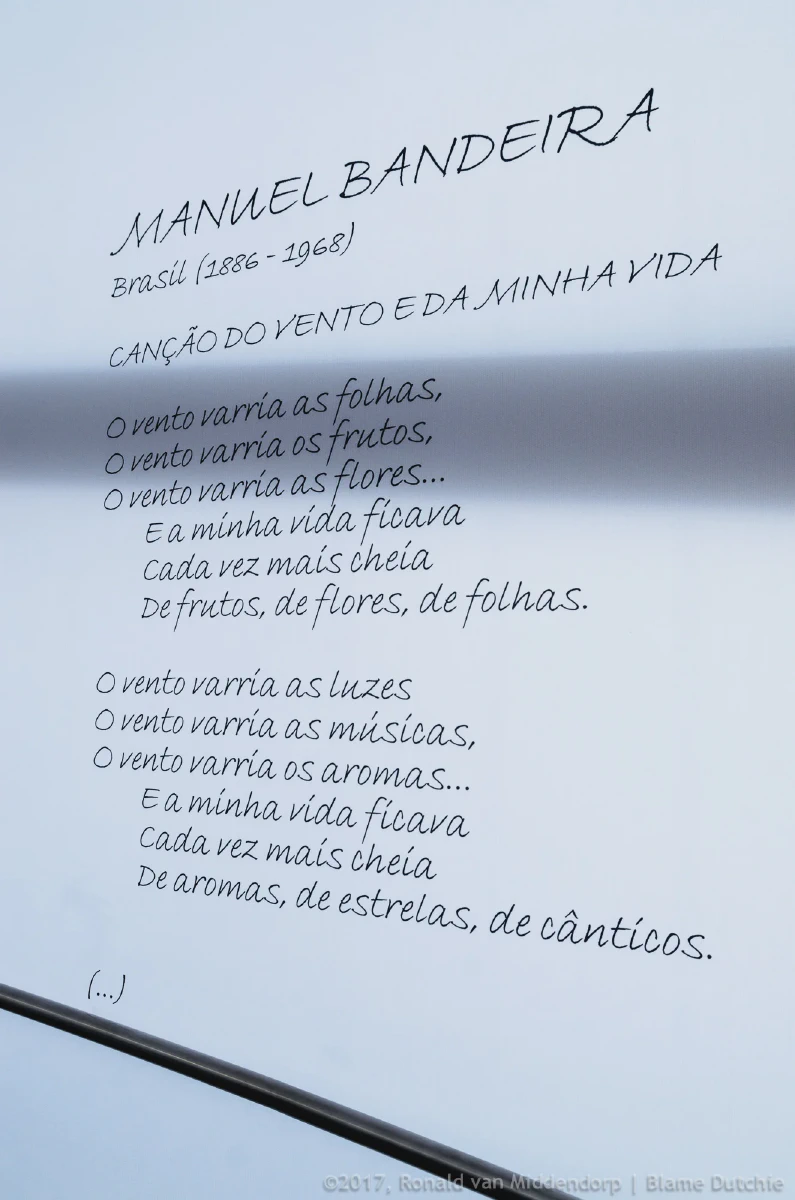 MANUEL BANDEIRA
Brasil (1886 - 1968)
CANÇÃO DO VENTO E DA MINHA VIDA
O vento varria as folhas,
O vento varria os frutos,
O vento varria as flores...
E a minha vida ficava
Cada vez mais cheia
De frutos, de flores, de folhas.
O vento varria as luzes
O vento varria as músicas,
O vento varria os aromas...
E a minha vida ficava
Cada vez mais cheia
De aromas, de estrelas, de cânticos.
(...)
©2017, Ronald van Middendorp | Blame Dutchie